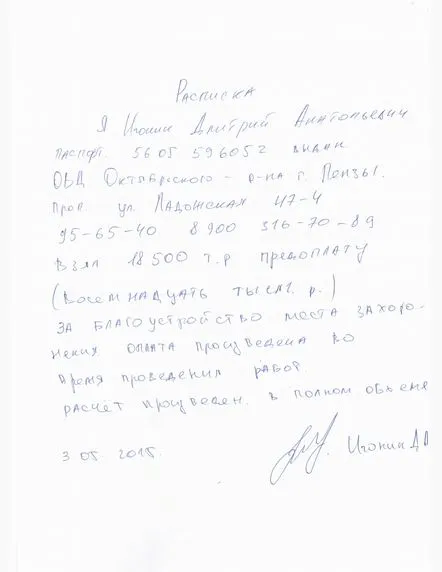 Расписка
Я Игонин Дмитрий Анатольевич
паспорт. 5605 596052 выдан
ОВД Октябрьского - р-на г. Пензы.
проп ул. Ладожская 47-4
95-65-40 8 900 316-70-89
Взял 18500 т.р предоплату
(Восемнадцать тысяч. р.)
за благоустройство места захоро-
нения оплата произведена во
время проведения работ.
расчет произведен. в полном объеме
3 05. 2015. Игонин Д А